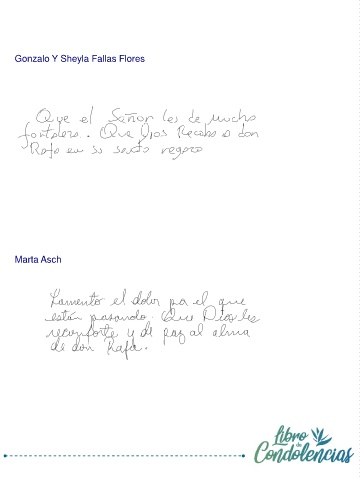 Gonzalo Y Sheyla Fallas Flores
Que el Señor les de mucho
fortaleza. Que Dios Reciba a don
Rafa en su santo regazo
Marta Asch
Lamento el dolor por el que
están pasando. Que Dios les
reconforte y dé paz al alma
de don Rafa.
Libro
de
Condolencias